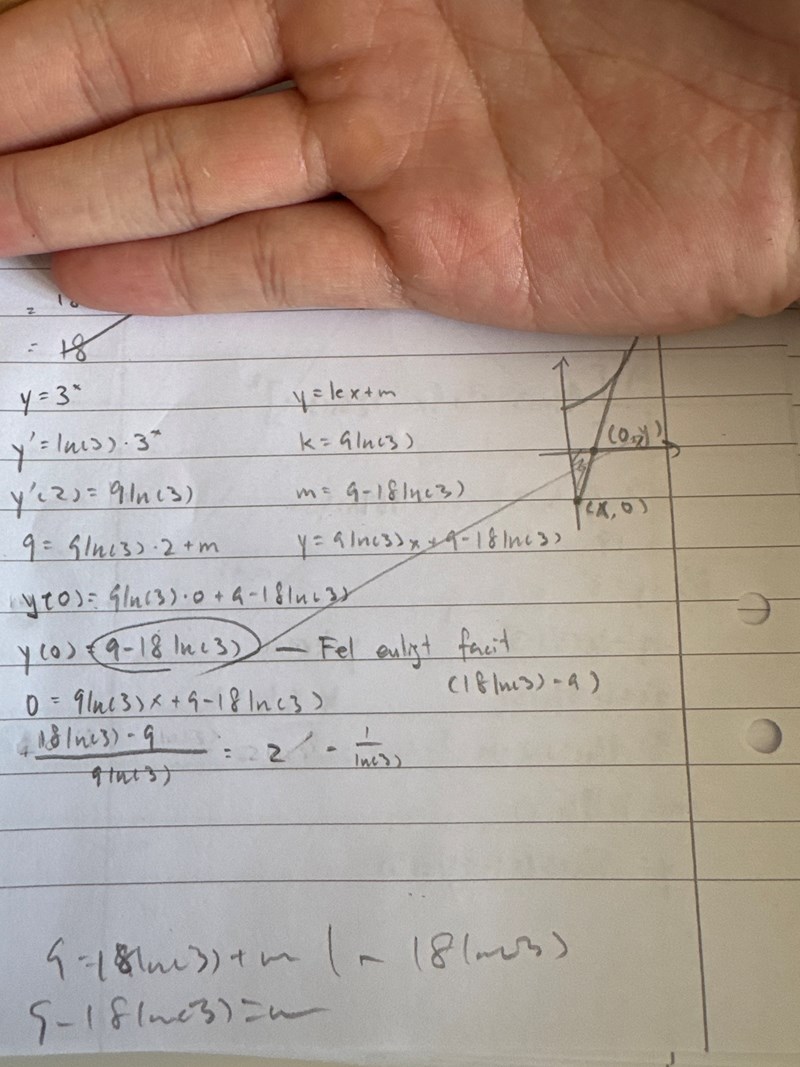 = 18
y = 3ˣ
y = kx + m
y' = ln(3) · 3ˣ
k = 9ln(3)
(0, y)
y'(2) = 9ln(3)
m = 9 - 18ln(3)
(x, 0)
9 = 9ln(3) · 2 + m
y = 9ln(3)x + 9 - 18ln(3)
y(0) = 9ln(3) · 0 + 9 - 18ln(3)
y(0) = 9 - 18 ln(3) — Fel enligt facit
(18ln(3) - 9)
0 = 9ln(3)x + 9 - 18ln(3)
18ln(3) - 9 / 9ln(3) = 2 - 1/ln(3)
9 = 18ln(3) + m | - 18ln(3)
9 - 18ln(3) = m